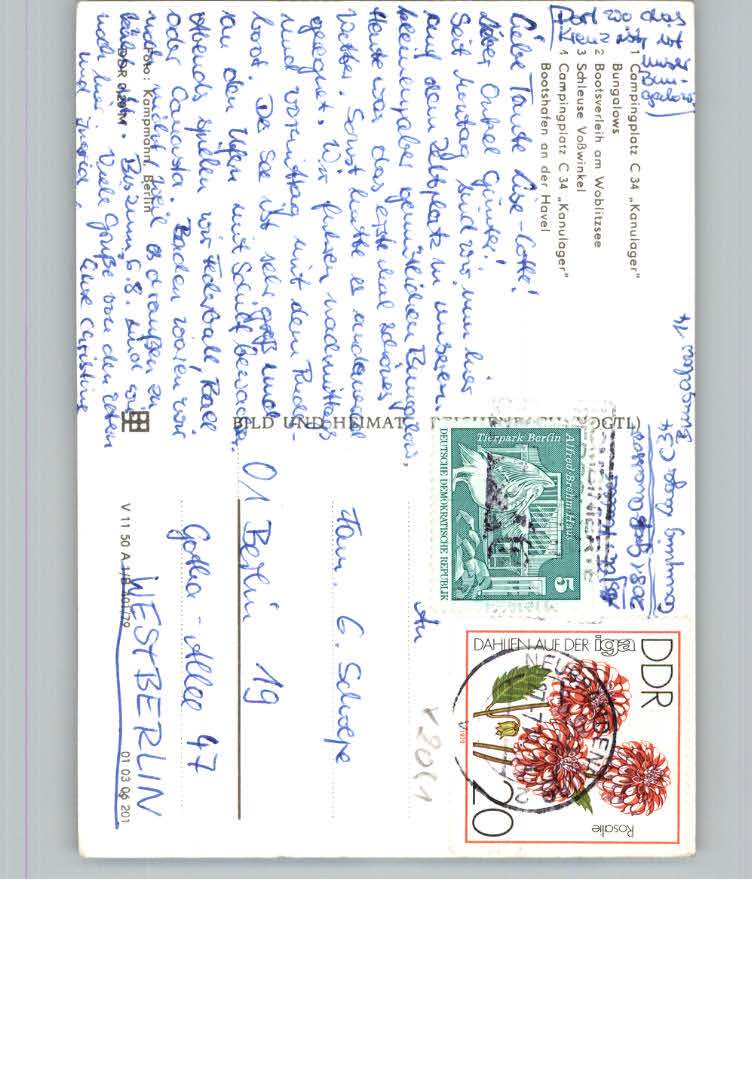 1 Campingplatz C 34 „Kanulager"
Bungalows
2 Bootsverleih am Woblitzsee
3 Schleuse Voßwinkel
4 Campingplatz C 34 „Kanulager"
Bootshafen an der Havel
das
ist
unser
Bun-
galow
Liebe Tante Lise-Lotte!
Lieber Onkel Günter!
Seit Montag sind wir nun hier
auf dem Zeltplatz in unserem
kleinen, aber gemütlichen Bungalow.
Heute war das erste Mal schönes
Wetter. Sonst hatte es andauernd
geregnet. Wir fuhren nachmittags
und vormittag mit dem Ruder-
boot. Die See ist sehr groß und
an den Ufern mit Schilf bewachsen.
Abends spielen wir Federball, Rad
oder Canasta. Baden waren wir
noch nicht, weil es draußen zu
kalt ist. Bis zum 6.8. sind wir
noch hier. Viele Grüße von den Eltern
und Eure Christine
Foto: Kampmann, Berlin
DDR
BILD UND HEIMAT REICHENBACH (VOGTL)
V 11 50 A 1/B 601/79
01 03 06 201
An
Fam. G. Schoepe
01 Berlin 19
Gotha-Allee 47
WESTBERLIN
Tierpark Berlin
Alfred-Brehm-Haus
DEUTSCHE DEMOKRATISCHE REPUBLIK
5
DDR
DAHLIEN AUF DER iga
Rosalie
20